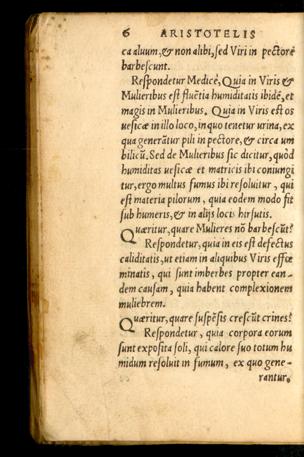 6 ARISTOTELIS
ca aluum, & non alibi, sed Viri in pectore
barbescunt.
Respondetur Medicè, Quia in Viris &
Mulieribus est fluētia humiditatis ibidē, et
magis in Mulieribus. Quia in Viris est os
uesicæ in illo loco, in quo tenetur urina, ex
qua generātur pili in pectore, & circa um
bilicū. Sed de Mulieribus sic dicitur, quòd
humiditas uesicæ et matricis ibi coniungi
tur, ergo multus fumus ibi resoluitur, qui
est materia pilorum, quia eodem modo fit
sub humeris, & in alijs locis hirsutis.
Quæritur, quare Mulieres nō barbescūt?
Respondetur, quia in eis est defectus
caliditatis, ut etiam in aliquibus Viris effœ
minatis, qui sunt imberbes propter ean-
dem causam, quia habent complexionem
muliebrem.
Quæritur, quare suspēsis crescūt crines?
Respondetur, quia corpora eorum
sunt exposita soli, qui calore suo totum hu
midum resoluit in fumum, ex quo gene-
rantur,